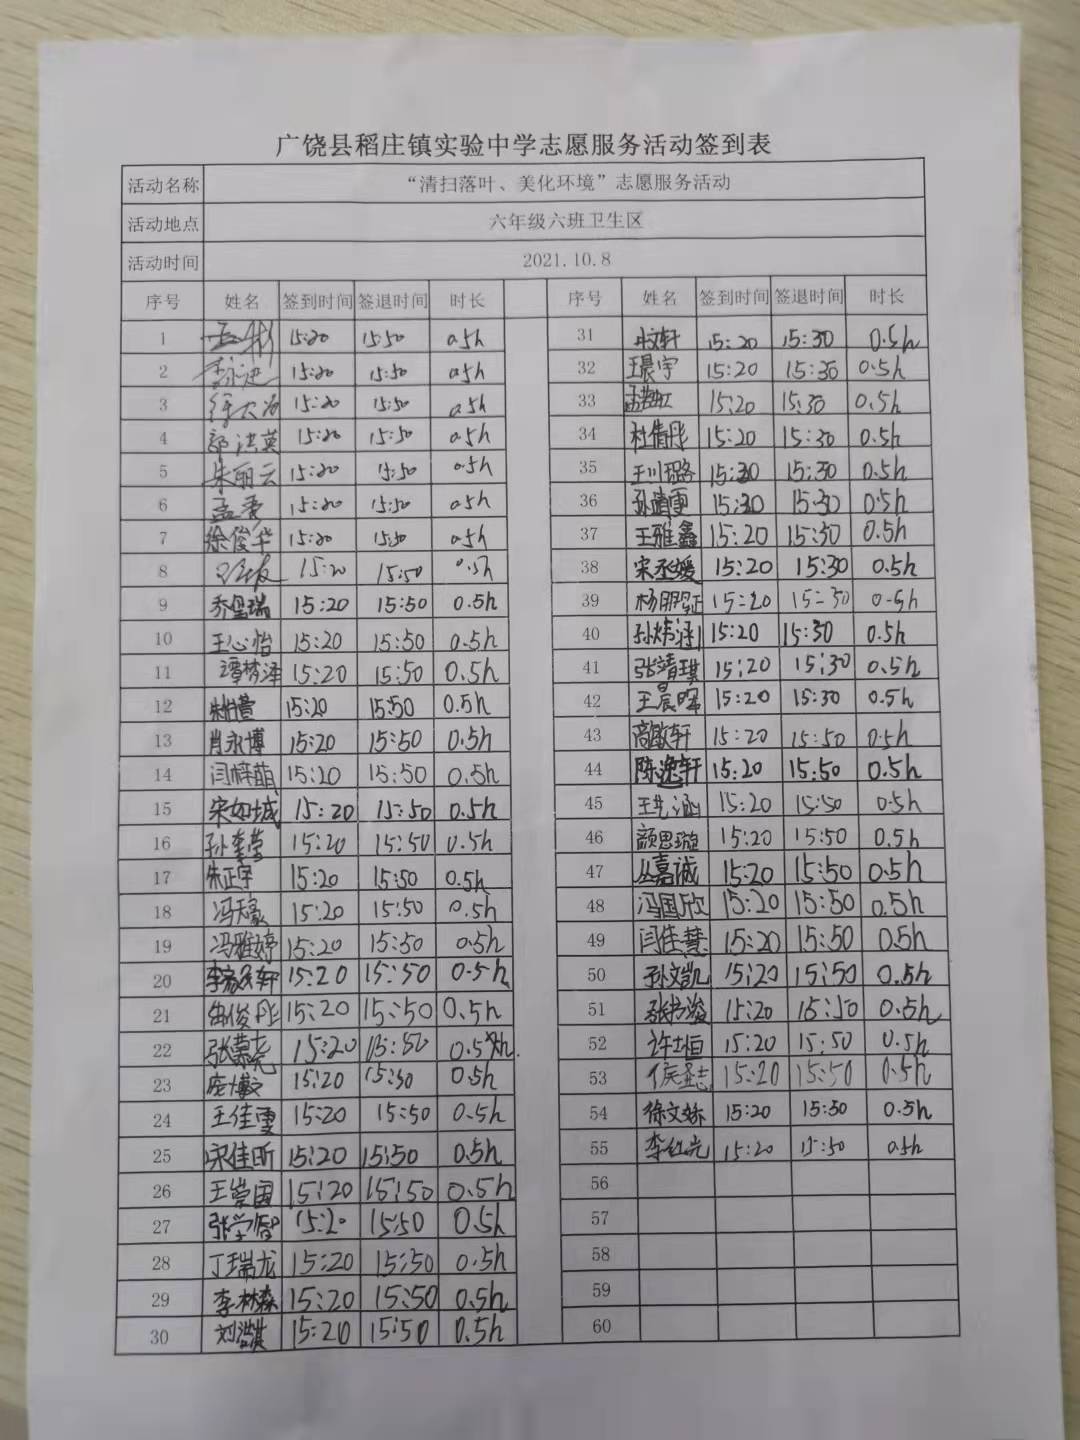 广饶县稻庄镇实验中学志愿服务活动签到表
活动名称 “清扫落叶、美化环境”志愿服务活动
活动地点 六年级六班卫生区
活动时间 2021.10.8
序号 姓名 签到时间 签退时间 时长 序号 姓名 签到时间 签退时间 时长
1 15:20 15:50 0.5h 31 15:20 15:30 0.5h
2 15:20 15:50 0.5h 32 王晨宇 15:20 15:30 0.5h
3 15:20 15:50 0.5h 33 15:20 15:30 0.5h
4 郭洪英 15:20 15:50 0.5h 34 杜倩彤 15:20 15:30 0.5h
5 朱丽云 15:20 15:50 0.5h 35 王川璐 15:30 0.5h
6 孟秀 15:20 15:50 0.5h 36 孙靖雯 15:30 0.5h
7 徐俊华 15:20 15:50 0.5h 37 王雅鑫 15:20 15:30 0.5h
8 15:20 15:50 0.5h 38 宋丞媛 15:20 15:30 0.5h
9 15:20 15:50 0.5h 39 15:20 15:30 0.5h
10 王心怡 15:20 15:50 0.5h 40 孙炜涵 15:20 15:30 0.5h
11 谭梦泽 15:20 15:50 0.5h 41 张靖琪 15:20 15:30 0.5h
12 15:20 15:50 0.5h 42 王晨晖 15:20 15:30 0.5h
13 肖永博 15:20 15:50 0.5h 43 高敏轩 15:20 15:50 0.5h
14 闫梓萌 15:20 15:50 0.5h 44 陈逸轩 15:20 15:50 0.5h
15 宋如城 15:20 15:50 0.5h 45 王艺涵 15:20 15:50 0.5h
16 15:20 15:50 0.5h 46 颜思璇 15:20 15:50 0.5h
17 朱正宇 15:20 15:50 0.5h 47 丛嘉诚 15:20 15:50 0.5h
18 冯天豪 15:20 15:50 0.5h 48 冯国欣 15:20 15:50 0.5h
19 冯雅婷 15:20 15:50 0.5h 49 闫佳慧 15:20 15:50 0.5h
20 15:20 15:50 0.5h 50 孙文凯 15:20 15:50 0.5h
21 15:20 15:50 0.5h 51 15:20 15:50 0.5h
22 15:20 15:50 52 15:20 15:50 0.5h
23 15:20 15:50 0.5h 53 15:20 15:50 0.5h
24 王佳雯 15:20 15:50 0.5h 54 徐文娇 15:20 15:50 0.5h
25 宋佳昕 15:20 15:50 0.5h 55 15:20 15:50 0.5h
26 王崇国 15:20 15:50 0.5h 56
27 张学智 15:20 15:50 0.5h 57
28 丁瑞龙 15:20 15:50 0.5h 58
29 李林森 15:20 15:50 0.5h 59
30 刘浩淇 15:20 15:50 0.5h 60